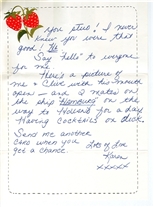 you stud! I never
knew you were that
good!
Say "hello" to everyone
for me.
Here's a picture of
me & Clive with his mouth
open – and 2 mates on
the ship Hamburg on the
way to Holland for a day
Having Cocktails on deck.
Send me another
card when you
get a chance.
Lots of love
Karen
xxxxx